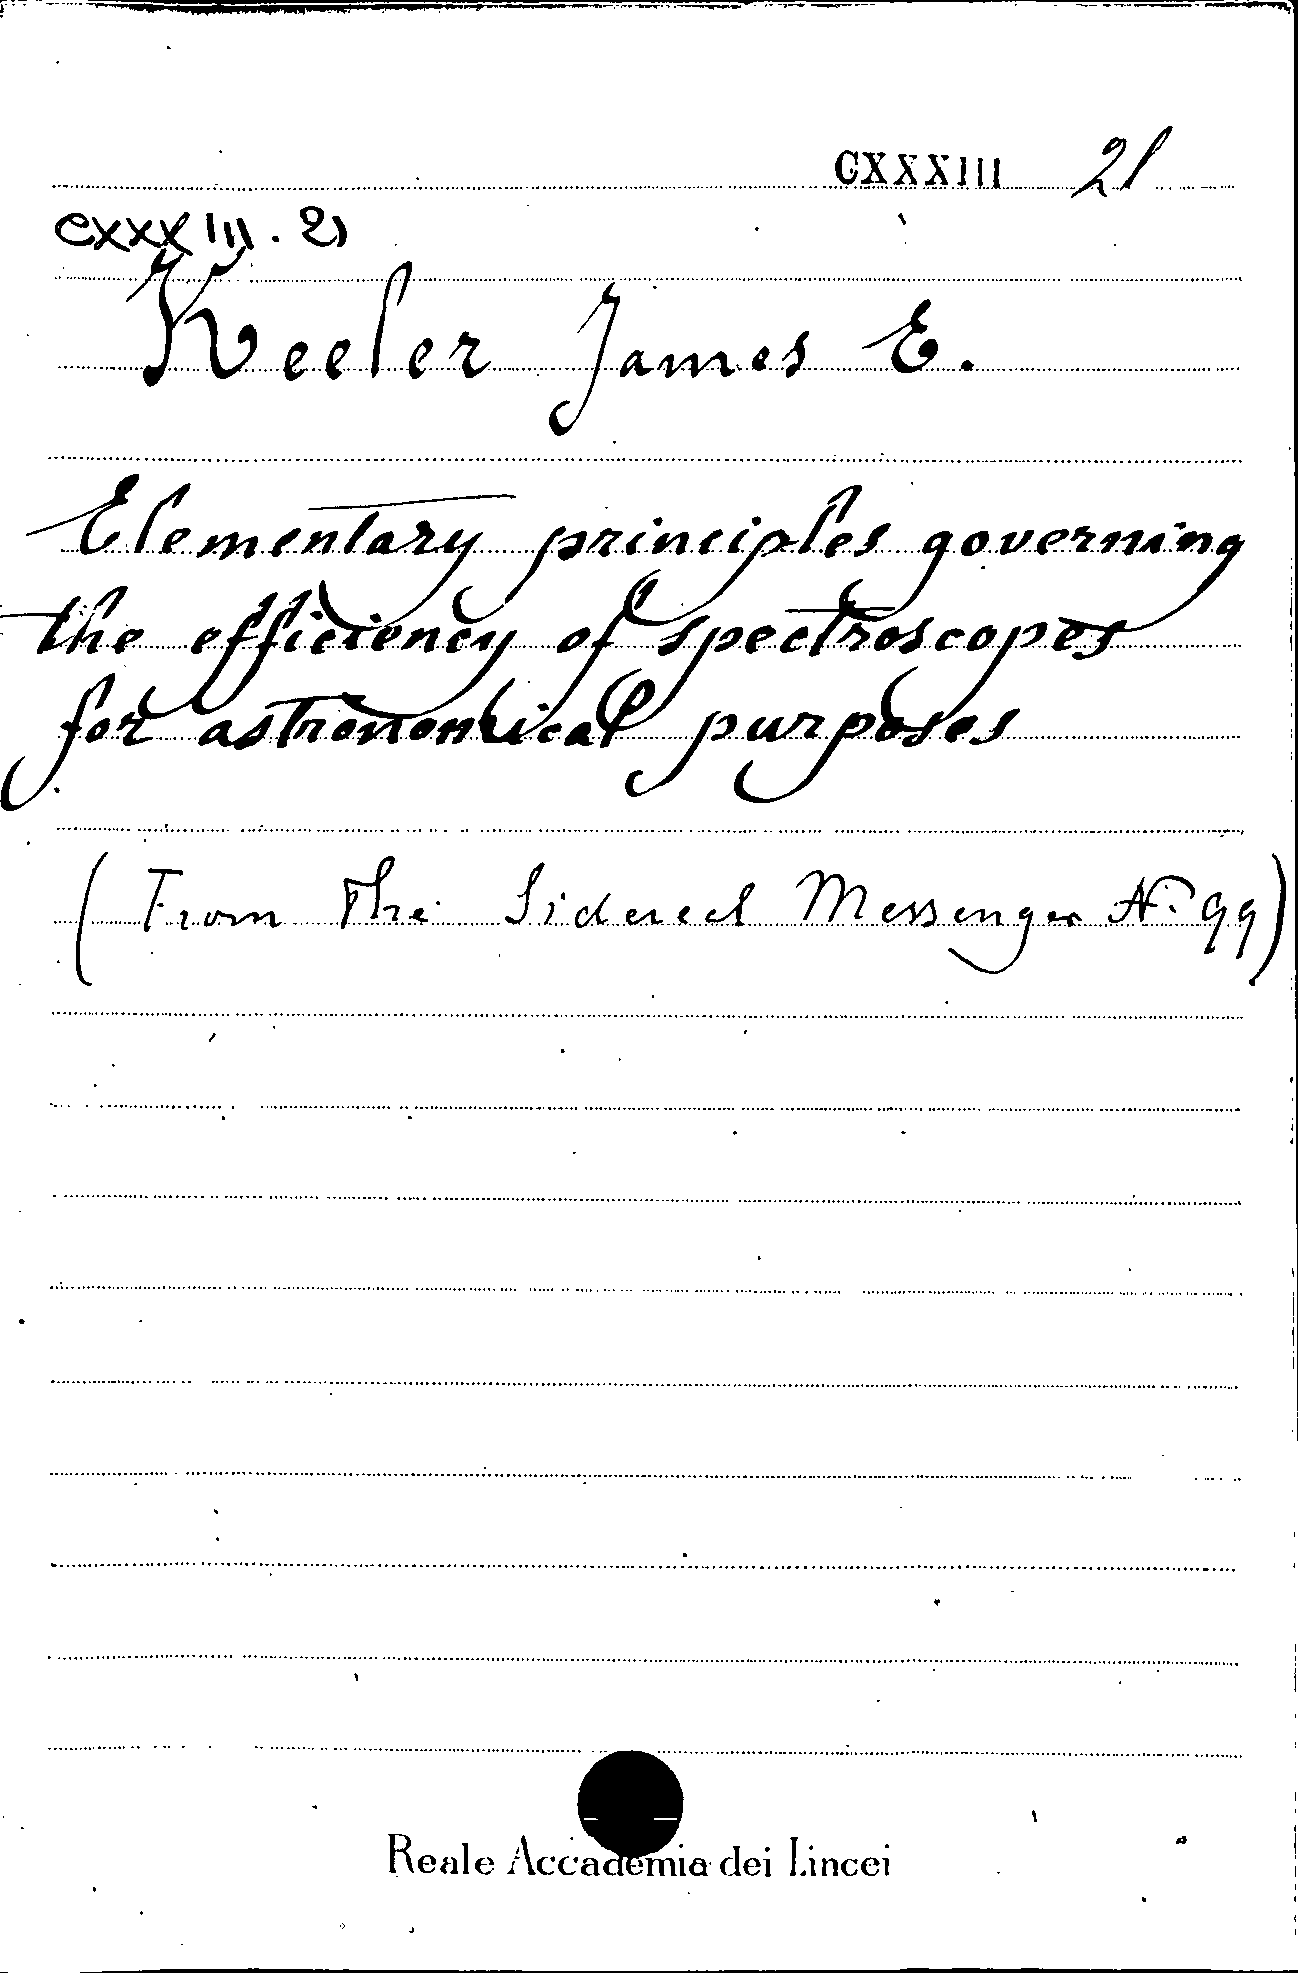 CXXXIII 21
CXXXIII. 21
Keeler James E.
Elementary principles governing
the efficiency of spectroscopes
for astronomical purposes
(From the Sidereal Messenger N. 99)
Reale Accademia dei Lincei